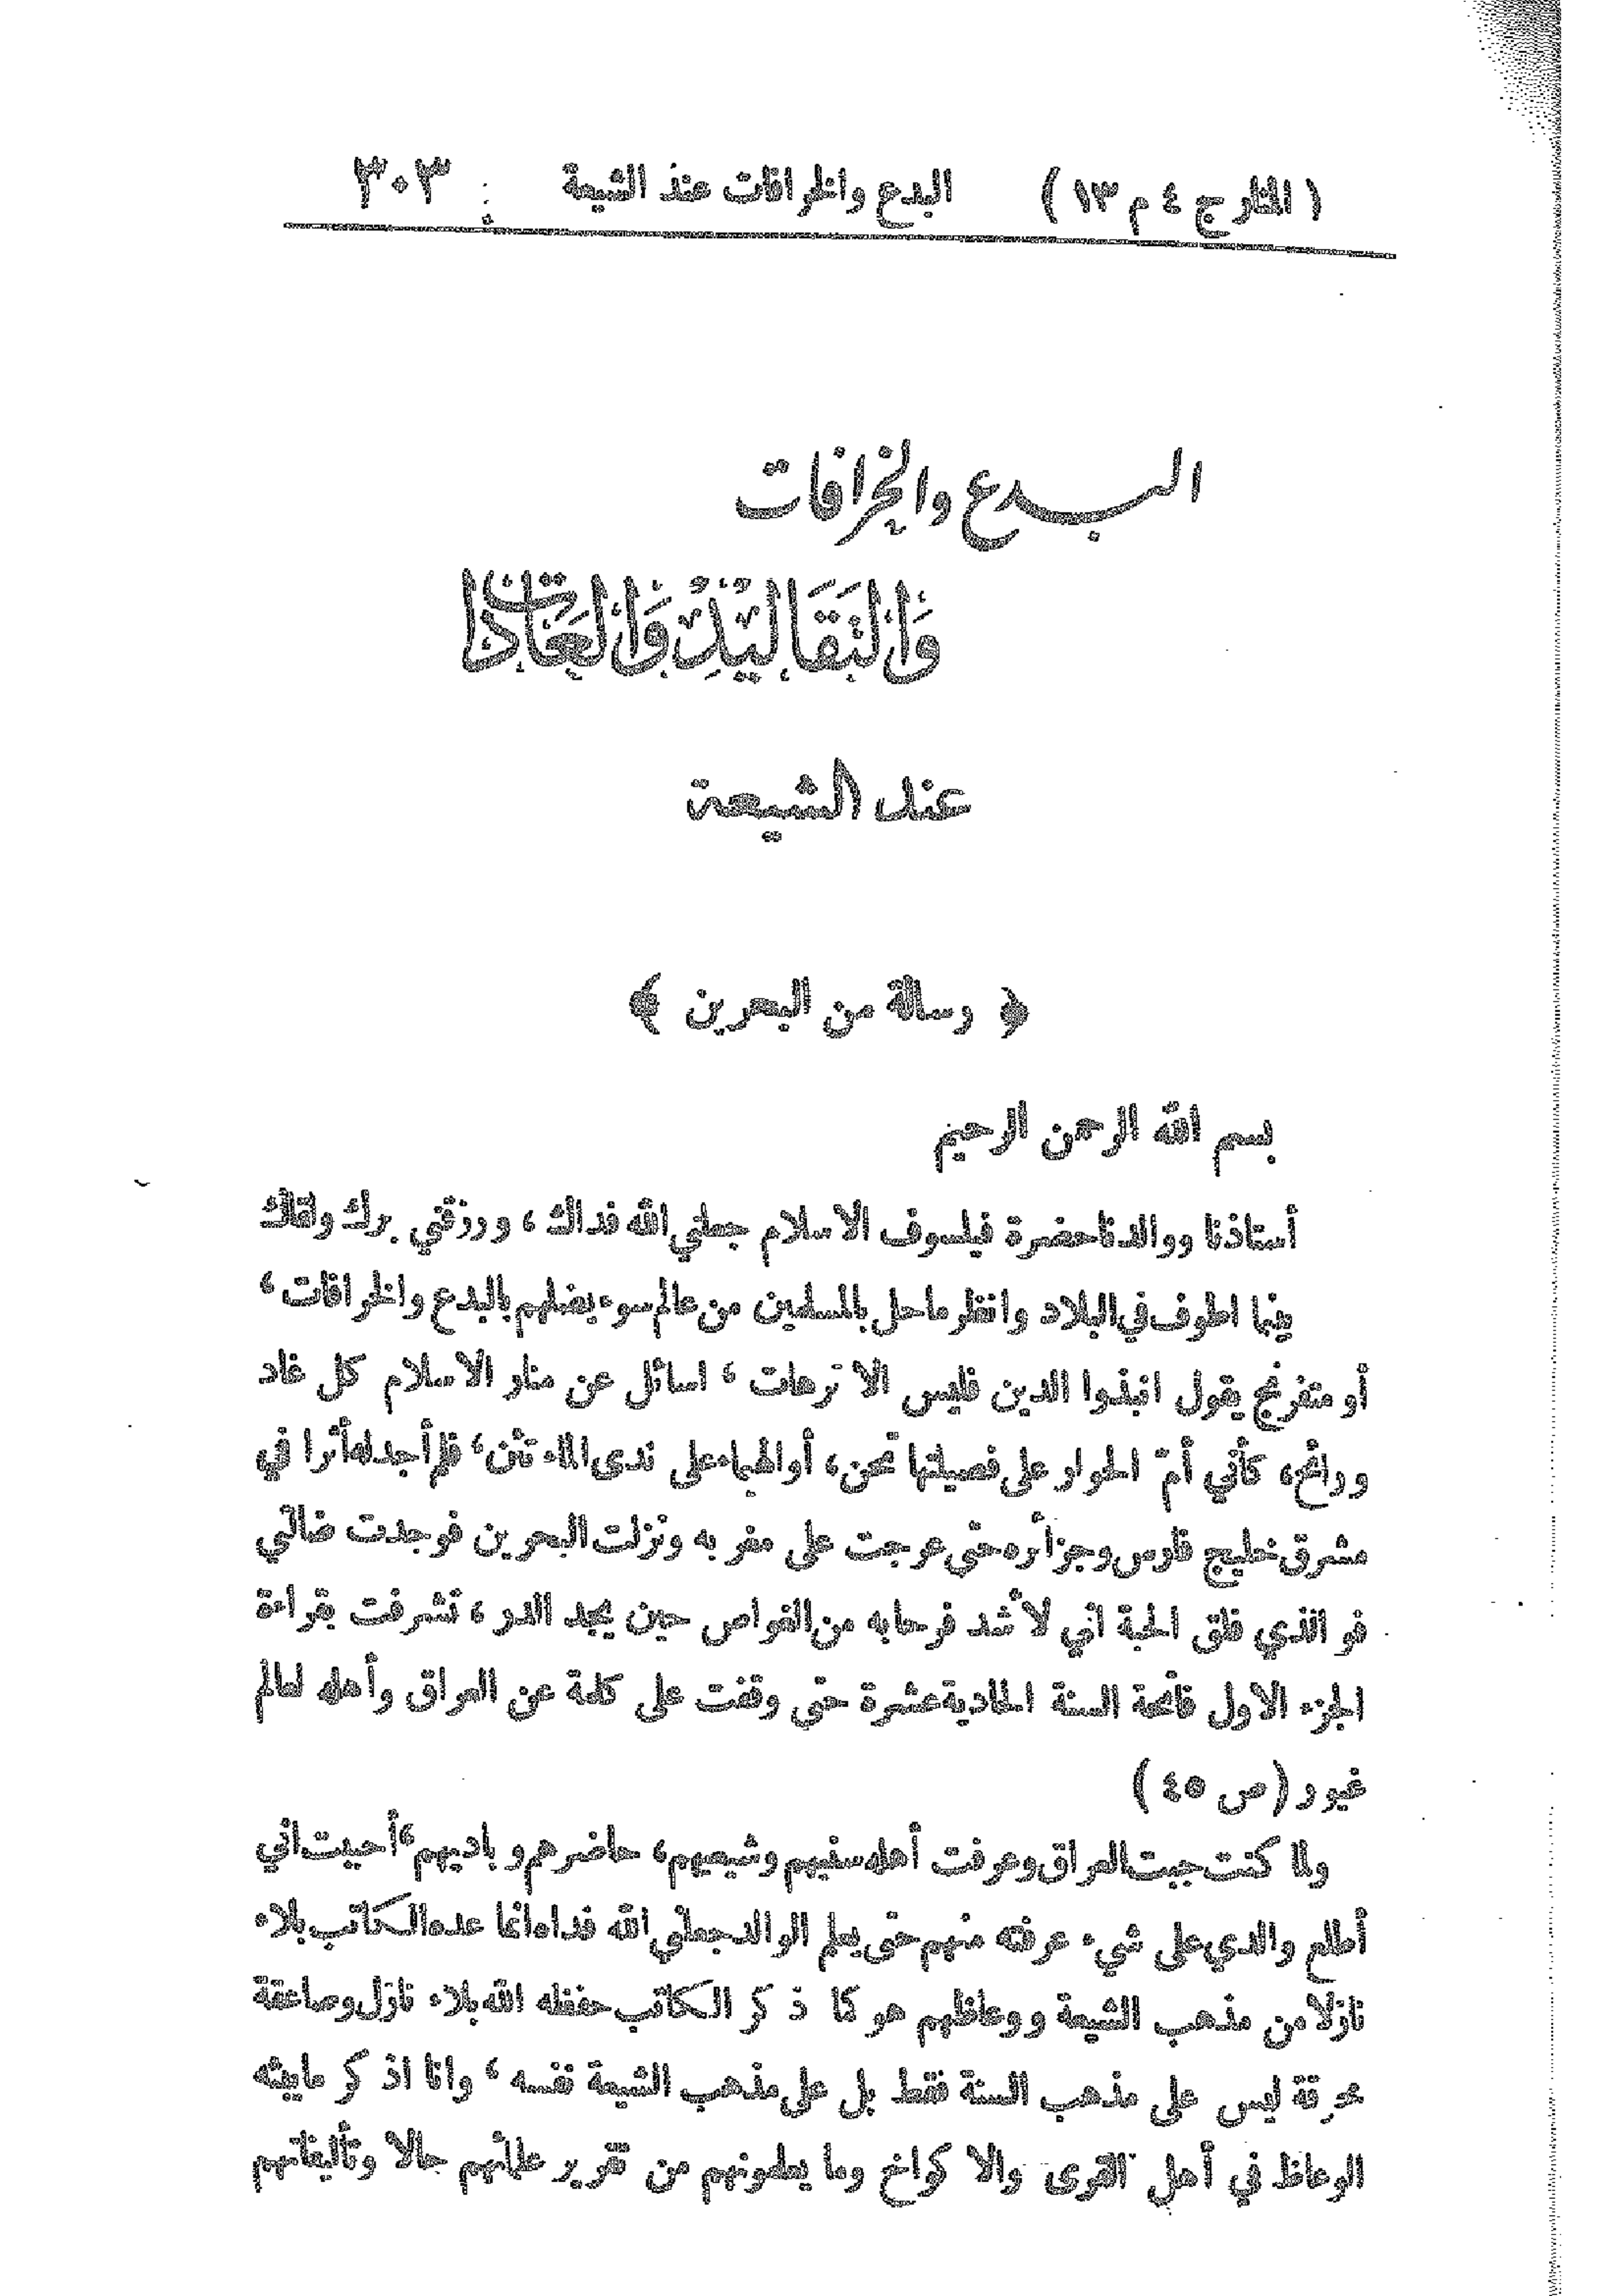 ( المنار ج ٤ م ١٣ ) البدع والخرافات عند الشيعة ٣٠٣
البدع والخرافات
والتقاليد والعادات
عند الشيعة
﴿ رسالة من البحرين ﴾
بسم الله الرحمن الرحيم
أستاذنا ووالدنا حضرة فيلسوف الاسلام جعلني الله فداك ، ورزقني برك ولقاك
بينما اطوف في البلاد وانظر ما حل بالمسلمين من عالم سوء يضلهم بالبدع والخرافات ،
أو متفرنج يقول انبذوا الدين فليس الا ترهات ، اسائل عن منار الاسلام كل غاد
ورائح، كأني أمّ الحوار على فصيلتها تحن، أو الهيماء على ندى الماء تئن، فلم أجد له أثرا في
مشرق خليج فارس وجزائره حتى عرجت على مغربه ونزلت البحرين فوجدت ضالتي
فو الذي فلق الحبة اني لأشد فرحا به من الغواص حين يجد الدر ، تشرفت بقراءة
الجزء الاول فاتحة السنة الحادية عشرة حتى وقفت على كلمة عن العراق وأهله لعالم
غيور (ص ٤٥)
ولما كنت جبت العراق وعرفت أهله سنيهم وشيعيهم، حاضرهم وباديهم، أحببت اني
أطلع والدي على شيء عرفته منهم حتى يعلم الوالد جعلني الله فداه انما عده الكاتب بلاء
نازلا من مذهب الشيعة ووعاظهم هو كما ذكر الكاتب حفظه الله بلاء نازل وصاعقة
محرقة ليس على مذهب السنة فقط بل على مذهب الشيعة نفسه ، وانا اذكر ما يبثه
الوعاظ في أهل القرى والا كواخ وما يعلمونهم من تقرير علمائهم حالا وتأليفاتهم